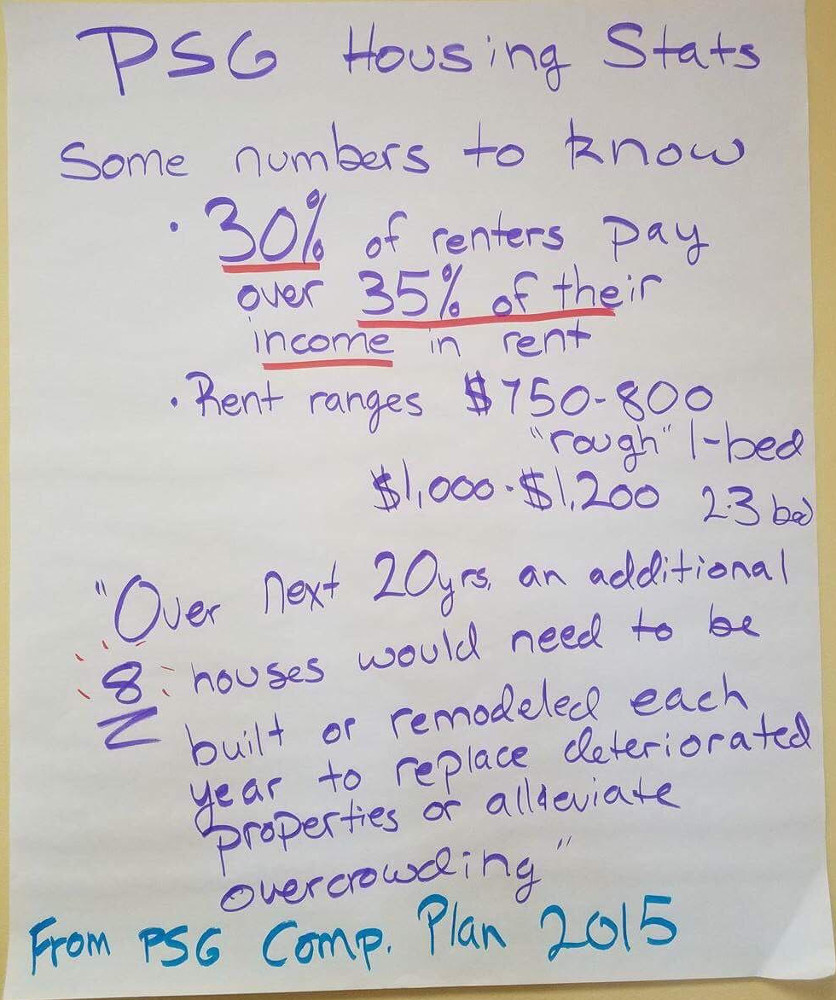 PSG Housing Stats
Some numbers to know
· 30% of renters pay
over 35% of their
income in rent
· Rent ranges $750-800
"rough" 1-bed
$1,000-$1,200 2-3 bed
"Over next 20yrs, an additional
8 houses would need to be
built or remodeled each
year to replace deteriorated
properties or alleviate
overcrowding"
From PSG Comp. Plan 2015